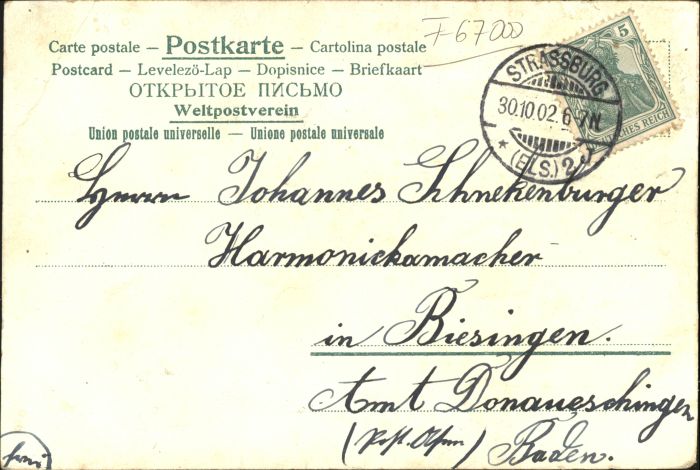 F 67000
Carte postale – Postkarte – Cartolina postale
Postcard – Levelező-Lap – Dopisnice – Briefkaart
ОТКРЫТОЕ ПИСЬМО
Weltpostverein
Union postale universelle — Unione postale universale
5
DEUTSCHES REICH
STRASSBURG
30.10.02. 6-7N.
* (ELS.) 2 J
Herrn Johannes Schnekenburger
Harmonickamacher
in Biesingen.
Amt Donaueschingen
(Post.
Baden.